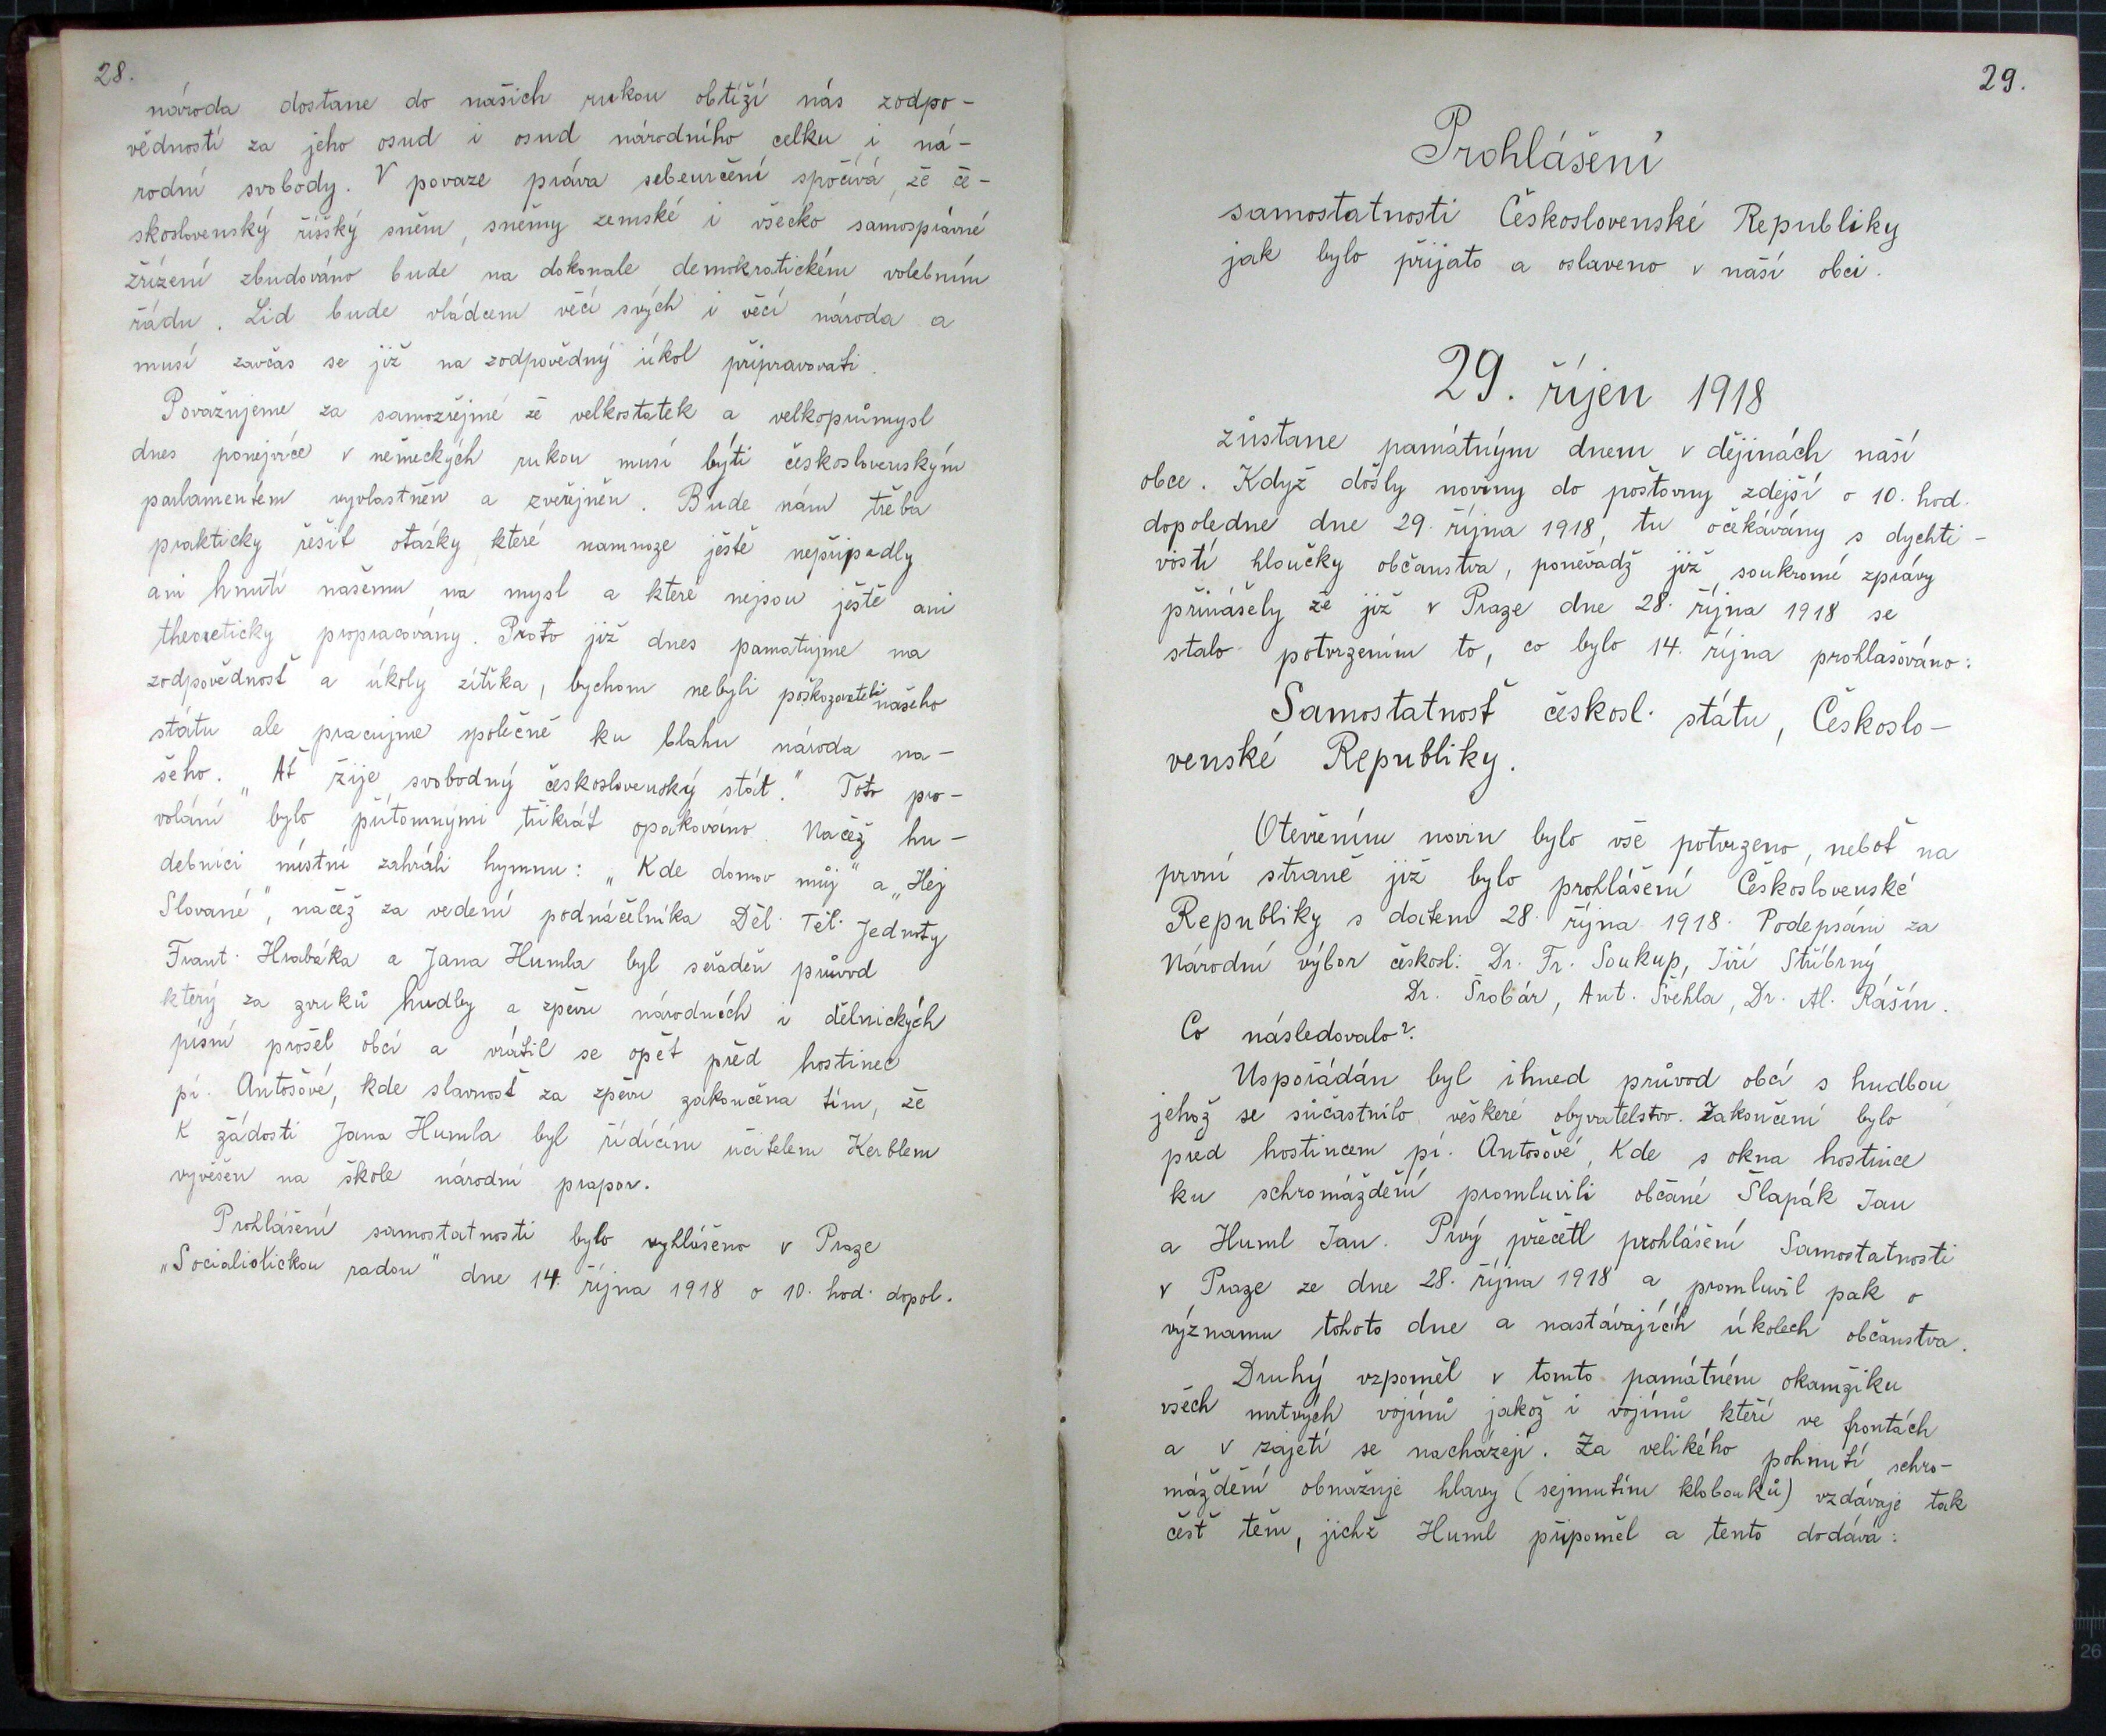 28.
národa dostane do našich rukou obtíží nás zodpo-
vědností za jeho osud i osud národního celku i ná-
rodní svobody. V povaze práva sebeurčení spočívá, že če-
skoslovenský říšský sněm, sněmy zemské i všecko samosprávné
zřízení zbudováno bude na dokonale demokratickém volebním
řádu. Lid bude vládcem věcí svých i věcí národa a
musí zavčas se již na zodpovědný úkol připravovati.
Považujeme za samozřejmé že velkostatek a velkoprůmysl
dnes ponejvíce v německých rukou musí býti československým
parlamentem vyvlastněn a zveřejněn. Bude nám třeba
prakticky řešit otázky, které namnoze ještě nepřipadly
ani hnutí našemu na mysl a které nejsou ještě ani
theoreticky propracovány. Proto již dnes pamatujme na
zodpovědnosť a úkoly zítřka, bychom nebyli poškozovateli našeho
státu ale pracujme společně ku blahu národa na-
šeho. „Ať žije svobodný československý stát." Toto pro-
volání bylo přítomnými třikrát opakováno. Načež hu-
debníci místní zahráli hymnu: „Kde domov můj" a „Hej
Slované", načež za vedení podnáčelníka Děl. Těl. Jednoty
Frant. Hrabáka a Jana Humla byl seřaděn průvod
který za zvuků hudby a zpěvu národních i dělnických
písní prošel obcí a vrátil se opět před hostinec
pí. Antošové, kde slavnosť za zpěvu zakončena tím, že
K žádosti Jana Humla byl řídícím učitelem Kerblem
vyvěšen na škole národní prapor.
Prohlášení samostatnosti bylo vyhlášeno v Praze
„Socialistickou radou" dne 14. října 1918 o 10. hod. dopol.
29.
Prohlášení
samostatnosti Československé Republiky
jak bylo přijato a oslaveno v naší obci.
29. říjen 1918
zůstane památným dnem v dějinách naší
obce. Když došly noviny do poštovny zdejší o 10. hod.
dopoledne dne 29. října 1918, tu očekávány s dychti-
vostí hloučky občanstva, poněvadž již soukromé zprávy
přinášely že již v Praze dne 28. října 1918 se
stalo potvrzením to, co bylo 14. října prohlašováno:
Samostatnosť českosl. státu, Českoslo-
venské Republiky.
Otevřením novin bylo vše potvrzeno, neboť na
první straně již bylo prohlášení Československé
Republiky s datem 28. října 1918. Podepsáni za
Národní výbor českosl: Dr. Fr. Soukup, Jiří Stříbrný,
Dr. Šrobár, Ant. Švehla, Dr. Al. Rašín.
Co následovalo?
Uspořádán byl ihned průvod obcí s hudbou
jehož se súčastnilo veškeré obyvatelstvo. Zakončení bylo
před hostincem pí. Antošové, Kde s okna hostince
ku schromáždění promluvili občané Šlapák Jan
a Huml Jan. Prvý přečetl prohlášení Samostatnosti
v Praze ze dne 28. října 1918 a promluvil pak o
významu tohoto dne a nastávajících úkolech občanstva.
Druhý vzpoměl v tomto památném okamžiku
všech mrtvých vojínů jakož i vojínů kteří ve frontách
a v zajetí se nacházejí. Za velikého pohnutí schro-
máždění obnažuje hlavy (sejmutím klobouků) vzdávaje tak
čest těm, jichž Huml připoměl a tento dodává:
26